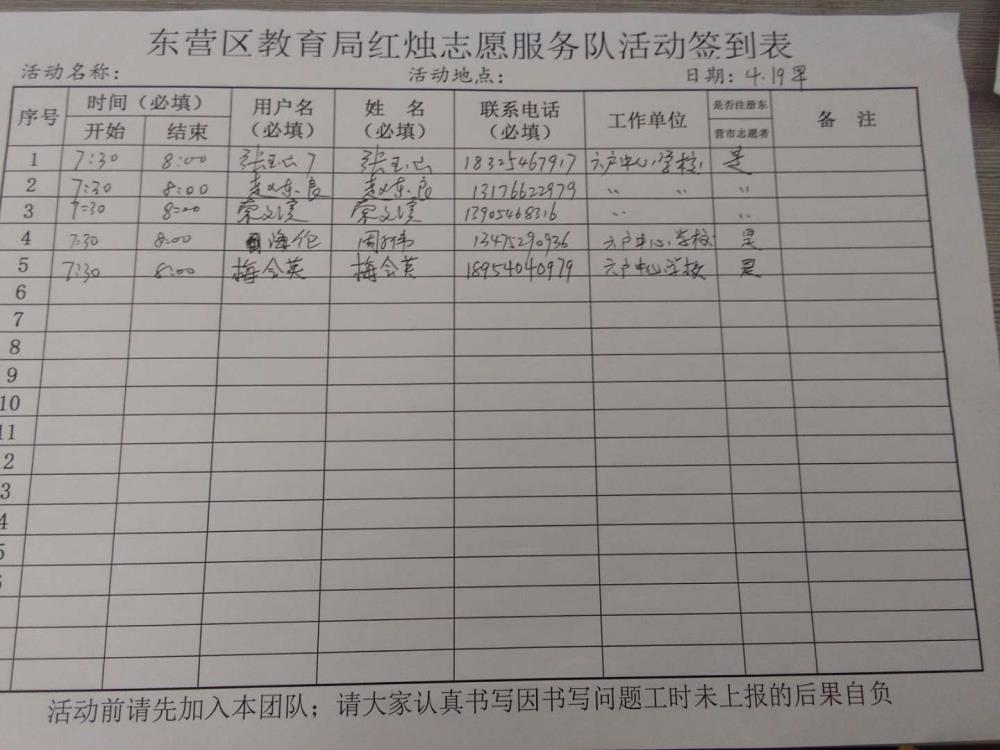 东营区教育局红烛志愿服务队活动签到表
活动名称： 活动地点： 日期：4.19早
序号 时间（必填） 用户名（必填） 姓 名（必填） 联系电话（必填） 工作单位 是否注册东营市志愿者 备 注
开始 结束
1 7:30 8:00 18325467917 六户中心小学校 是
2 7:30 8:00 赵东良 赵东良 13176622979 〃 〃 〃
3 7:30 8:00 13905468316 〃 〃
4 7:30 8:00 海伦 周 13475290936 六户中心小学校 是
5 7:30 8:00 梅会英 梅会英 18954040979 六户中心学校 是
6
7
8
9
10
11
2
3
4
5
活动前请先加入本团队；请大家认真书写因书写问题工时未上报的后果自负